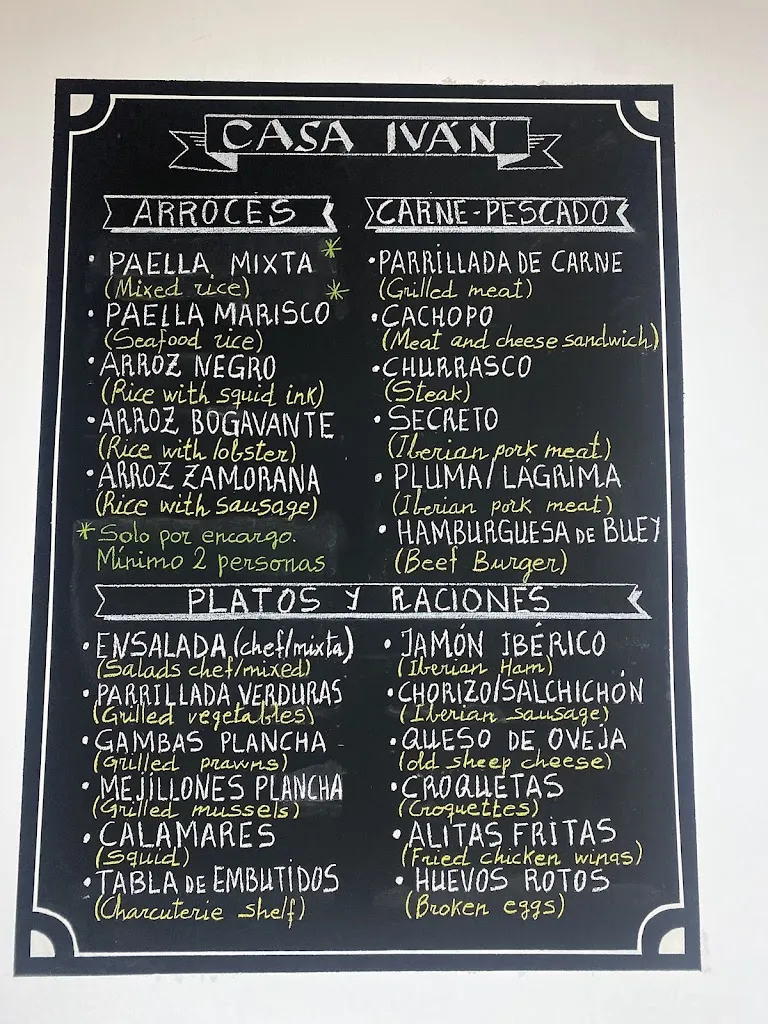 CASA IVÁN
ARROCES
• PAELLA MIXTA *
(Mixed rice)
• PAELLA MARISCO *
(Seafood rice)
• ARROZ NEGRO
(Rice with squid ink)
• ARROZ BOGAVANTE
(Rice with lobster)
• ARROZ ZAMORANA
(Rice with sausage)
* Solo por encargo.
Mínimo 2 personas
CARNE-PESCADO
• PARRILLADA DE CARNE
(Grilled meat)
• CACHOPO
(Meat and cheese sandwich)
• CHURRASCO
(Steak)
• SECRETO
(Iberian pork meat)
• PLUMA/LÁGRIMA
(Iberian pork meat)
• HAMBURGUESA DE BUEY
(Beef Burger)
PLATOS Y RACIONES
• ENSALADA (chef/mixta)
(Salads chef/mixed)
• PARRILLADA VERDURAS
(Grilled vegetables)
• GAMBAS PLANCHA
(Grilled prawns)
• MEJILLONES PLANCHA
(Grilled mussels)
• CALAMARES
(Squid)
• TABLA DE EMBUTIDOS
(Charcuterie shelf)
• JAMÓN IBÉRICO
(Iberian Ham)
• CHORIZO/SALCHICHÓN
(Iberian sausage)
• QUESO DE OVEJA
(old sheep cheese)
• CROQUETAS
(Croquettes)
• ALITAS FRITAS
(Fried chicken wings)
• HUEVOS ROTOS
(Broken eggs)